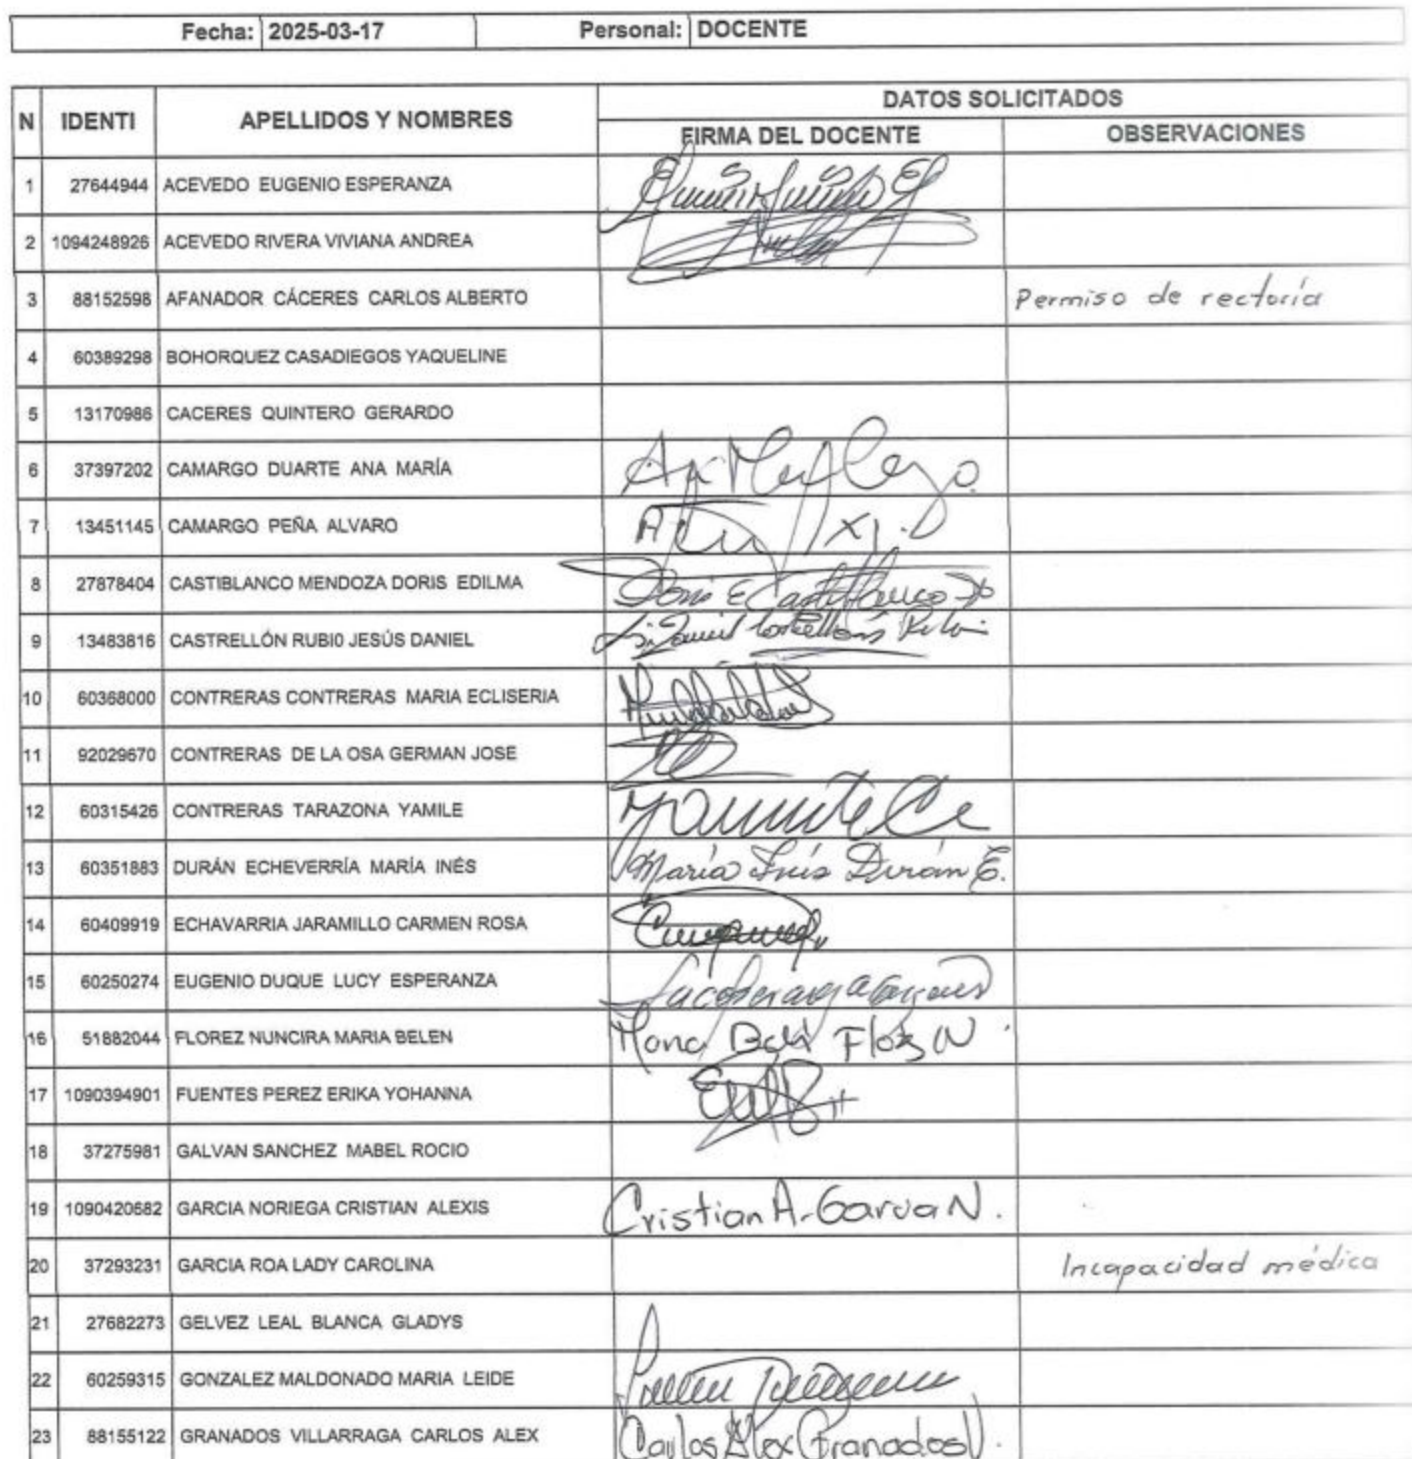 Fecha: 2025-03-17 Personal: DOCENTE
N IDENTI APELLIDOS Y NOMBRES DATOS SOLICITADOS
FIRMA DEL DOCENTE OBSERVACIONES
1 27644944 ACEVEDO EUGENIO ESPERANZA
2 1094248926 ACEVEDO RIVERA VIVIANA ANDREA
3 88152598 AFANADOR CÁCERES CARLOS ALBERTO Permiso de rectoría
4 60389298 BOHORQUEZ CASADIEGOS YAQUELINE
5 13170986 CACERES QUINTERO GERARDO
6 37397202 CAMARGO DUARTE ANA MARÍA
7 13451145 CAMARGO PEÑA ALVARO
8 27878404 CASTIBLANCO MENDOZA DORIS EDILMA Doris E Castiblanco
9 13483816 CASTRELLÓN RUBIO JESÚS DANIEL
10 60368000 CONTRERAS CONTRERAS MARIA ECLISERIA
11 92029670 CONTRERAS DE LA OSA GERMAN JOSE
12 60315426 CONTRERAS TARAZONA YAMILE
13 60351883 DURÁN ECHEVERRÍA MARÍA INÉS María Inés Durán E.
14 60409919 ECHAVARRIA JARAMILLO CARMEN ROSA
15 60250274 EUGENIO DUQUE LUCY ESPERANZA
16 51882044 FLOREZ NUNCIRA MARIA BELEN
17 1090394901 FUENTES PEREZ ERIKA YOHANNA
18 37275981 GALVAN SANCHEZ MABEL ROCIO
19 1090420682 GARCIA NORIEGA CRISTIAN ALEXIS Cristian A. Garcia N.
20 37293231 GARCIA ROA LADY CAROLINA Incapacidad médica
21 27682273 GELVEZ LEAL BLANCA GLADYS
22 60259315 GONZALEZ MALDONADO MARIA LEIDE
23 88155122 GRANADOS VILLARRAGA CARLOS ALEX Carlos Alex Granados V.